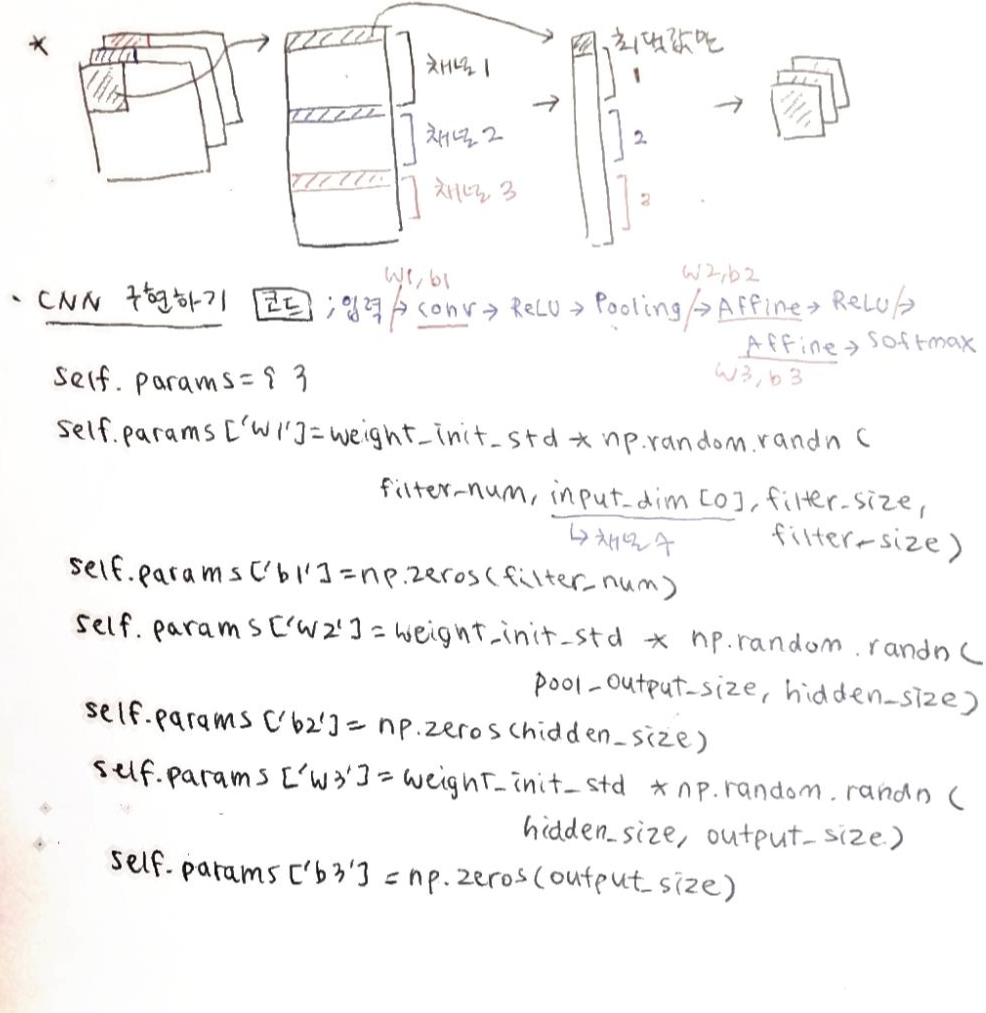 * 최댓값만
채널 1
1
채널 2
2
채널 3
3
w1,b1 w2,b2
· CNN 구현하기 코드 ; 입력 → conv → ReLU → Pooling → Affine → ReLU →
Affine → softmax
w3,b3
self.params={ }
self.params['w1']=weight_init_std * np.random.randn(
filter_num, input_dim[0], filter_size,
↳ 채널 수 filter_size)
self.params['b1']=np.zeros(filter_num)
self.params['w2']=weight_init_std * np.random.randn(
pool_output_size, hidden_size)
self.params['b2']= np.zeros(hidden_size)
self.params['w3']=weight_init_std *np.random.randn(
hidden_size, output_size)
self.params['b3']=np.zeros(output_size)